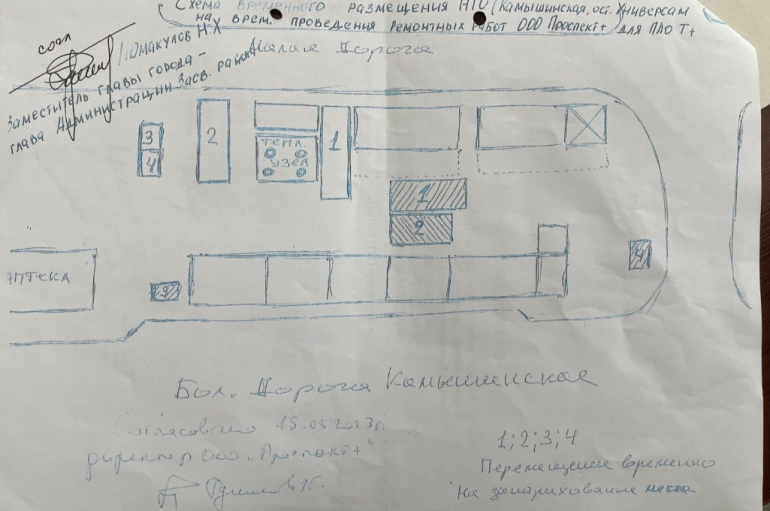 Схема временного размещения НТО (Камышинская, ост. Универсам
на врем. проведения ремонтных работ ООО Проспект+ для ПАО Т+
согл
Юмакулов Н Х
Заместитель главы города -
глава Администрации Засв. района
Малая Дорога
3
4
2
тепл.
узел
1
1
2
АПТЕКА
3
4
Бол. Дорога Камышинская
Согласовано 15.03.2023г.
директор ООО „Проспект+"
1; 2; 3; 4
Перемещение временно
на заштрихованые места